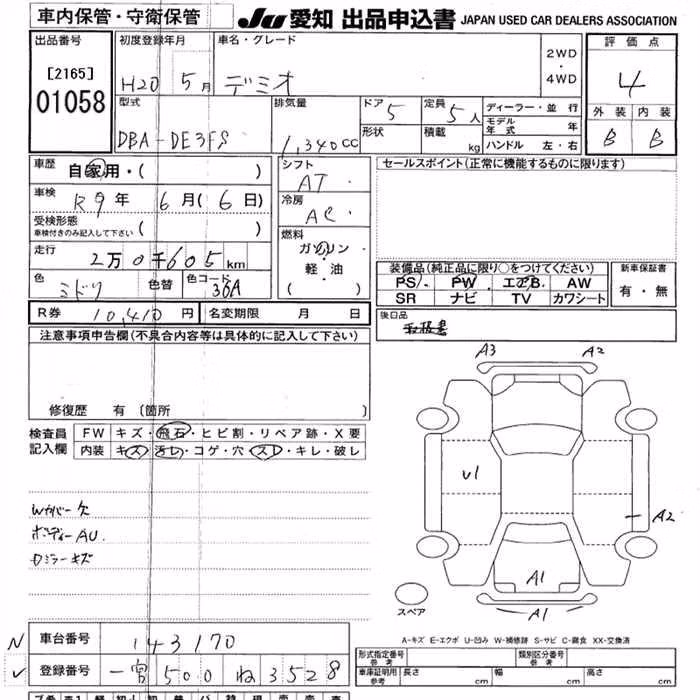 車内保管・守衛保管
JU 愛知 出品申込書 JAPAN USED CAR DEALERS ASSOCIATION
出品番号
[2165]
01058
初度登録年月
H20 5月
車名・グレード
デミオ
2WD
・
4WD
評価点
4
外装 内装
B B
型式
DBA-DE3FS
排気量
1,340cc
ドア 5
形状
定員 5人
積載 kg
ディーラー・並行
モデル年式 年
ハンドル 左・右
車歴 自家用・( )
車検 R9年 6月(6日)
受検形態
車検付きのみ記入して下さい ( )
走行 2万0千605km
色 ミドリ 色替 色コード 36A
シフト AT
冷房 AC
燃料 ガソリン
・
軽・油
( )
セールスポイント(正常に機能するものに限ります)
装備品(純正品に限り○をつけてください)
PS PW エアB AW
SR ナビ TV カワシート
新車保証書
有・無
R券 10,410円 名変期限 月 日
後日品
取扱書
注意事項申告欄(不具合内容等は具体的に記入して下さい)
修復歴 有 (箇所 )
検査員
記入欄
FW キズ・飛石・ヒビ割・リペア跡・X要
内装 キズ・汚レ・コゲ・穴・スレ・キレ・破レ
Wカバー欠
ボディーAU.
Dミラーキズ
A3 A2
U1
A2
A1
A1
スペア
A-キズ E-エクボ U-凹み W-補修跡 S-サビ C-腐食 XX-交換済
N 車台番号 143170
✓ 登録番号 一宮 500 ね 3528
形式指定番号
参考
類別区分番号
参考
車庫証明用
参考
長さ cm 幅 cm 高さ cm